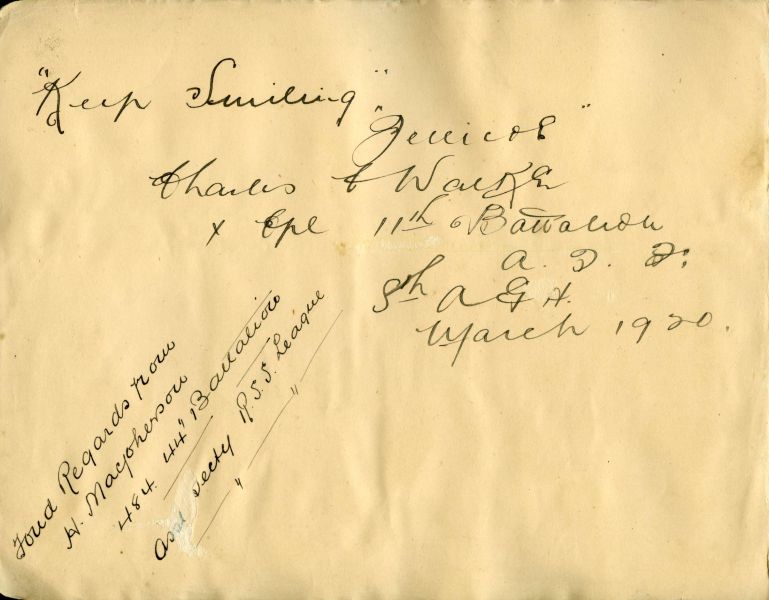 "Keep Smiling"
"Jellicoe"
Charles Walker
x Cpl 11th Battalion
A. I. F.
8th A G H.
March 1920.
Fond Regards from
H. Macpherson
484. 44" Battalion
Asst Secty R.S.S. League
" "